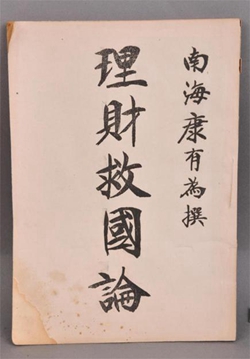 南海康有為撰
理財救國論